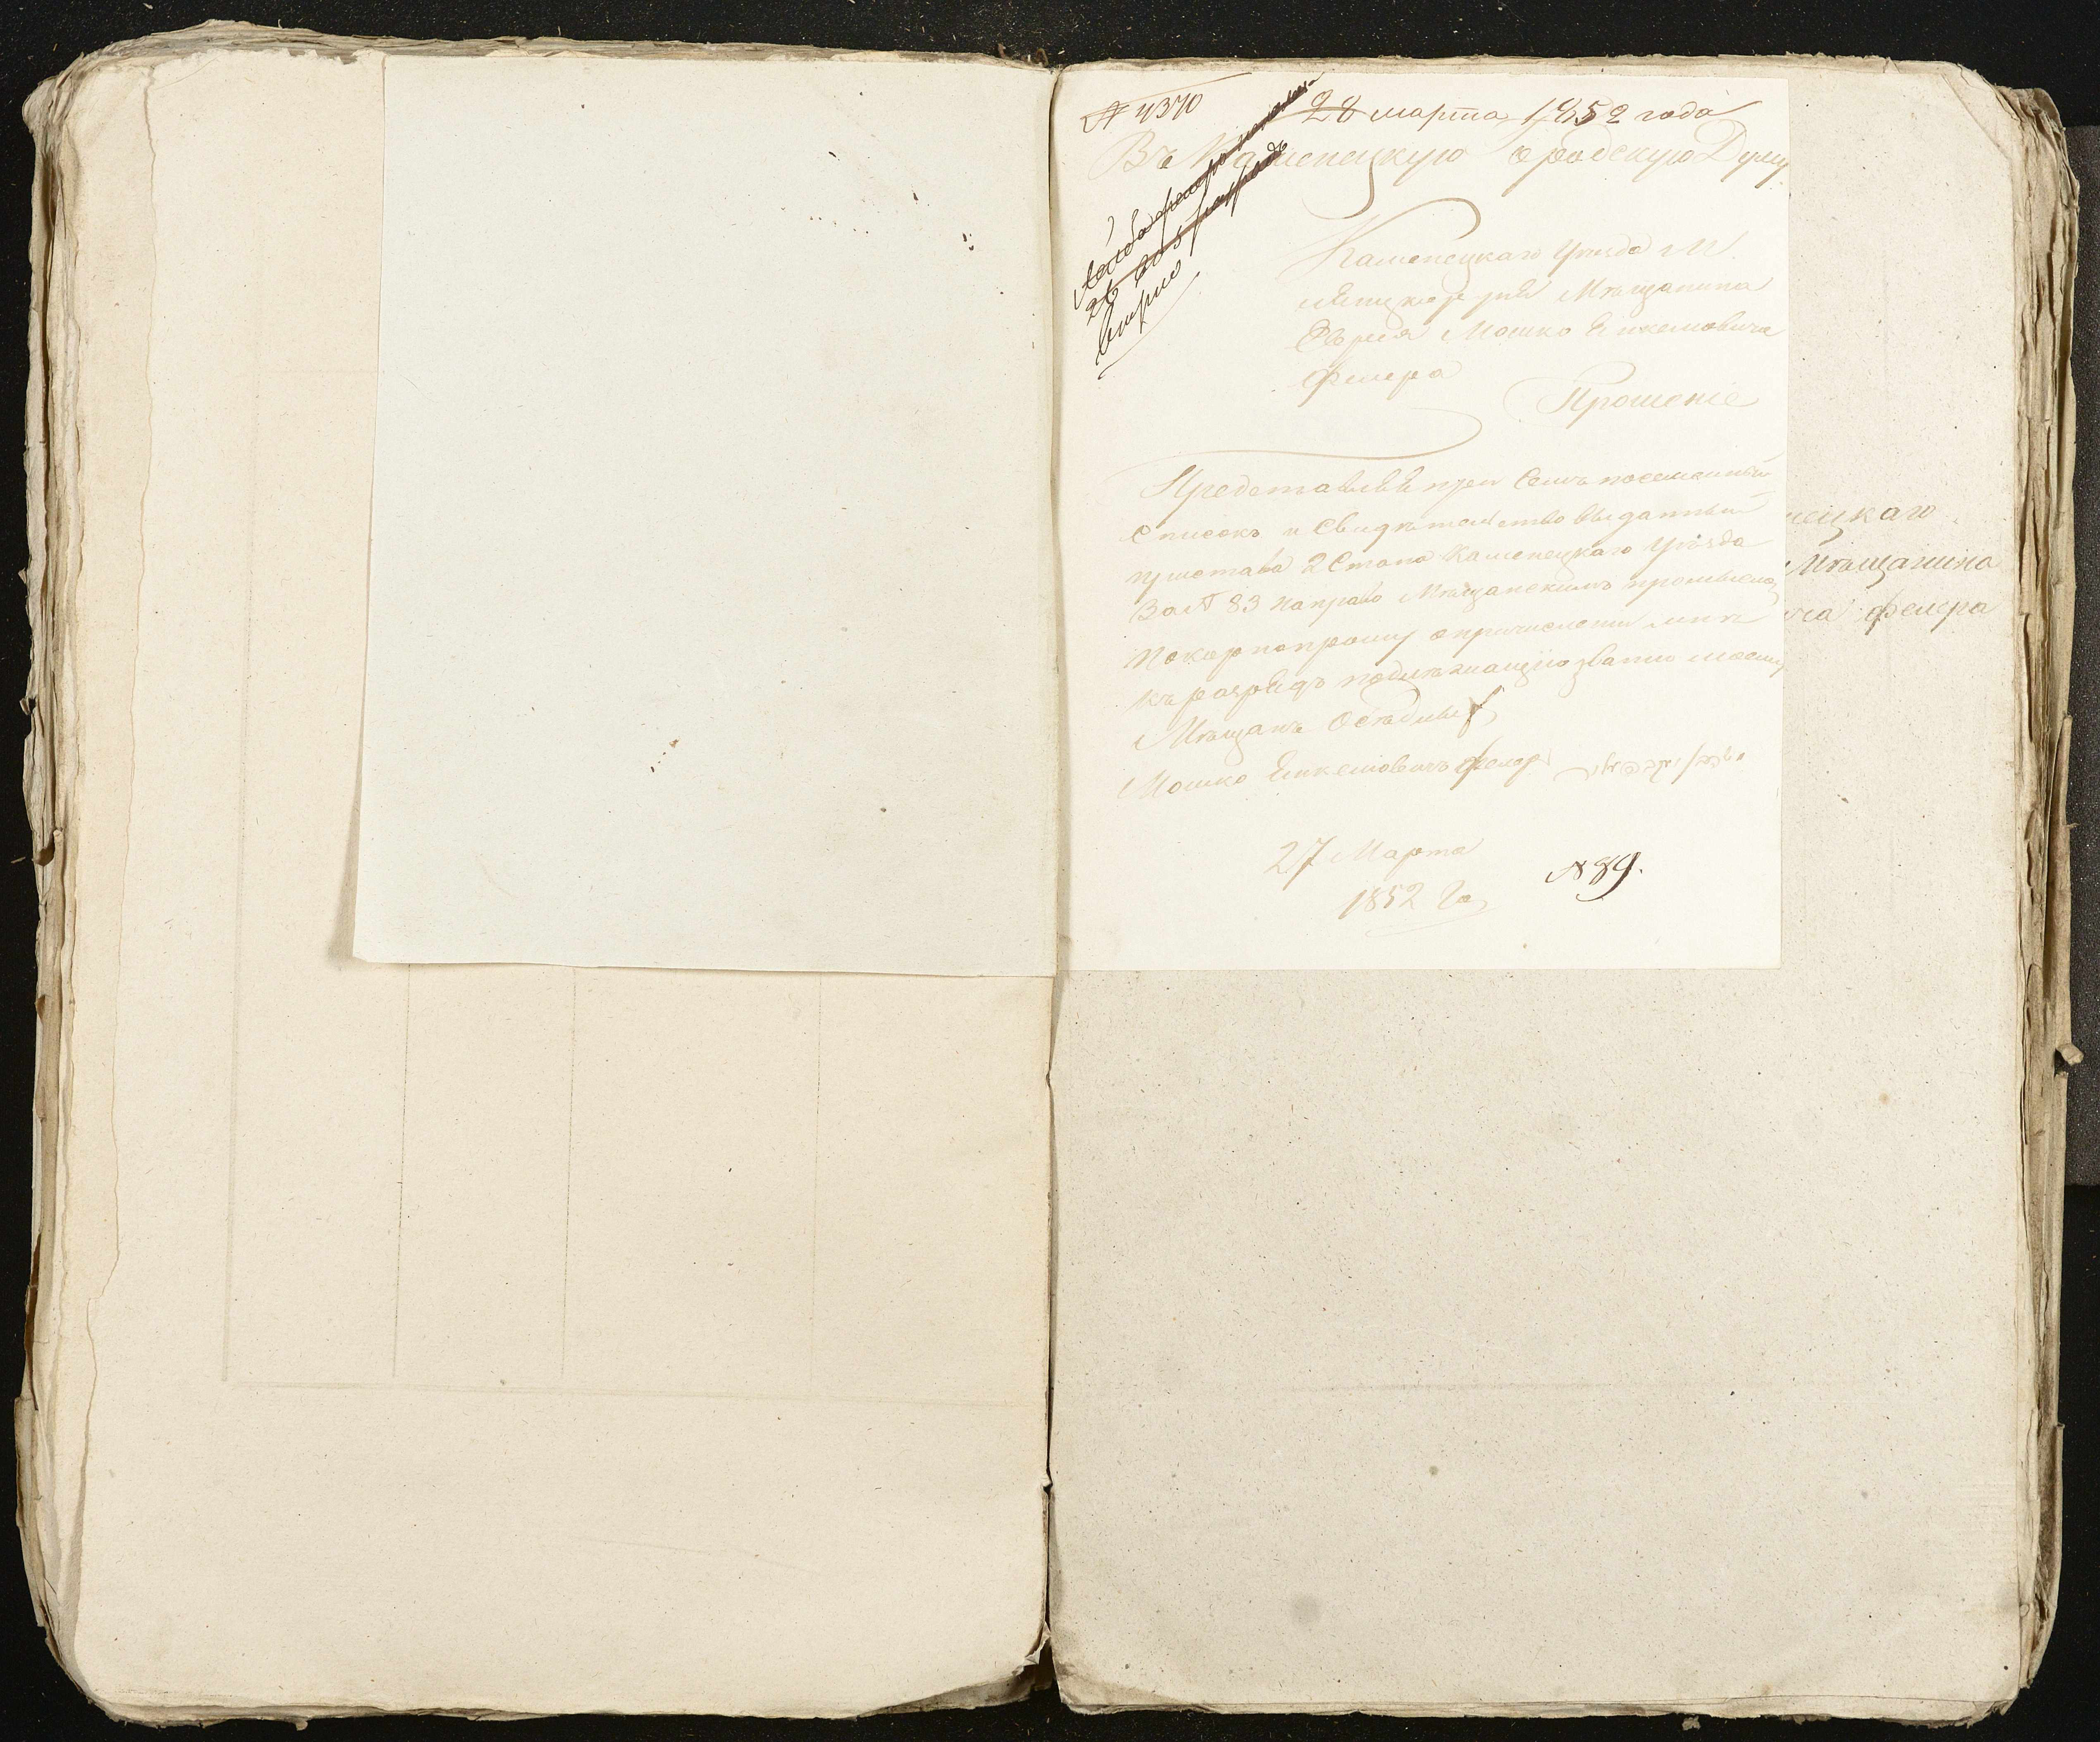 № 4370
28 марта 1852 года
Въ Каменецкую Городскую Думу
Каменецкаго Уѣзда М.
Мѣщанина
Еврея Мошко Еикемовича
Фелера
Прошеніе
Представляя при Семъ посемейный
Списокъ и Свидѣтельство выданный
пристава 2 Стана Каменецкаго Уѣзда
За № 83 на право Мѣщанскимъ промысломъ
покорно прошу о причисленіи мѣня
къ разряду подлежащую званію моему
Мѣщанъ Осѣдлых
Мошко Еикемовичъ Фелер
27 Марта
1852 Го
№ 89.
нецкаго
Мѣщанина
ича Фелера